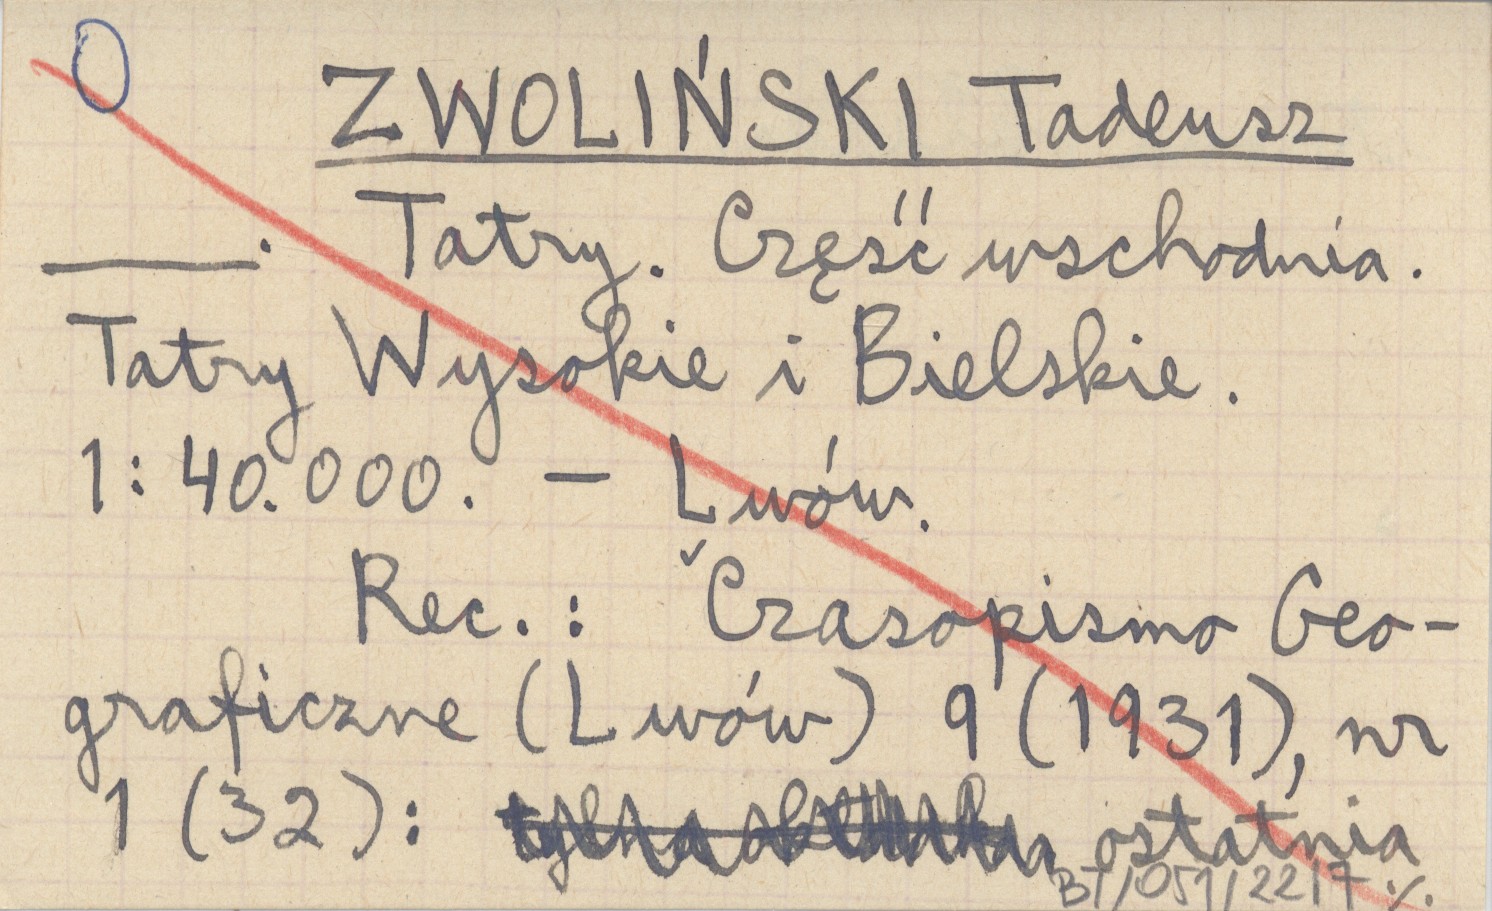 ZWOLIŃSKI Tadeusz
____. Tatry. Część wschodnia.
Tatry Wysokie i Bielskie.
1:40.000. — Lwów.
Rec.: Czasopismo Geo-
graficzne (Lwów) 9 (1931), nr
1 (32): ostatnia
BT/051/2217 ·/.